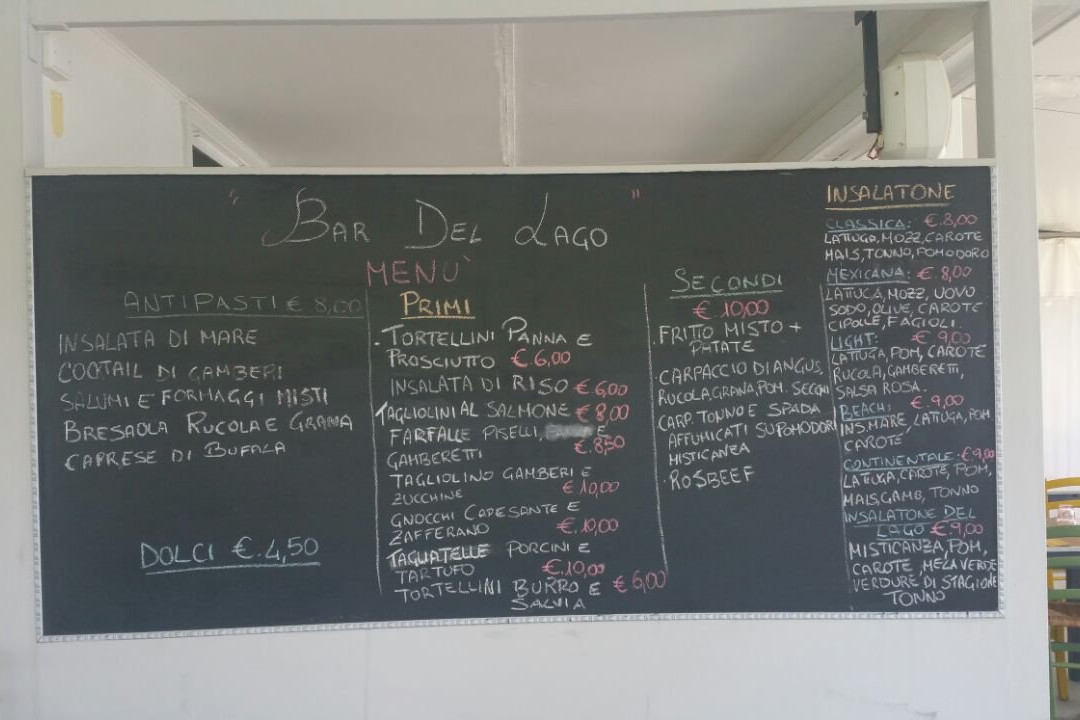 " BAR DEL LAGO "
MENU`
ANTIPASTI € 8,00
INSALATA DI MARE
COCTAIL DI GAMBERI
SALUMI E FORMAGGI MISTI
BRESAOLA RUCOLA E GRANA
CAPRESE DI BUFALA
DOLCI €.4,50
PRIMI
.TORTELLINI PANNA E
PROSCIUTTO €6,00
INSALATA DI RISO €6,00
TAGLIOLINI AL SALMONE €8,00
FARFALLE PISELLI, E
GAMBERETTI €.8,50
TAGLIOLINO GAMBERI E
ZUCCHINE €10,00
GNOCCHI CAPESANTE E
ZAFFERANO €.10,00
TAGLIATELLE PORCINI E
TARTUFO €.10,00
TORTELLINI BURRO E €6,00
SALVIA
SECONDI
€10,00
.FRITTO MISTO +
PATATE
.CARPACCIO DI ANGUS,
RUCOLA,GRANA,POM. SECCHI
CARP. TONNO E SPADA
AFFUMICATI SU POMODORI
MISTICANZA
.ROSBEEF
INSALATONE
CLASSICA: €.8,00
LATTUGA,MOZZ,CAROTE
MAIS,TONNO,POMODORO
MEXICANA: €.8,00
LATTUGA,MOZZ, UOVO
SODO,OLIVE,CAROTE
CIPOLLE,FAGIOLI.
LIGHT: €.9,00
LATTUGA,POM,CAROTE
RUCOLA,GAMBERETTI,
SALSA ROSA.
BEACH: €.9,00
INS.MARE,LATTUGA,POM
CAROTE
CONTINENTALE:€9,00
LATTUGA,CAROTE,POM,
MAIS,GAMB,TONNO
INSALATONE DEL
LAGO €.9,00
MISTICANZA,POM,
CAROTE,MELA VERDE
VERDURE DI STAGIONE
TONNO